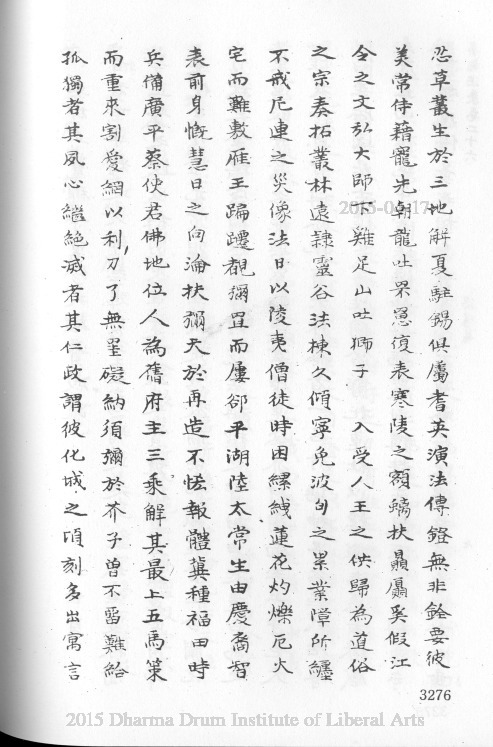 忍草叢生於三地解夏駐錫俱屬耆英演法傳鐙無非銓要彼
美常侍藉寵先朝龍吐眾罳復表寒陵之額鷸扶贔屭奚假江
令之文弘大師下雞足山吐獅子 入受人王之供歸為道俗
之宗奏拓叢林遠隷靈谷法棟久傾寧免波旬之累業障所纏
不戒尼連之災像法日以陵夷僧徒時困縲絏蓮花灼爍厄火
宅而難敷雁王蹁躚覩彌罝而屢郤平湖陸太常生由慶裔智
表前身慨慧日之向淪扶彌天於再造不恡報體冀種福田時
兵備廣平蔡使君佛地位人為舊府主三乘解其最上五馬策
而重來割愛網以利刀了無罣礙納須彌於芥子曾不畱難給
孤獨者其夙心繼絶滅者其仁政謂彼化城之頃刻多出寓言
3276
2015-0 17
2015 Dharma Drum Institute of Liberal Arts